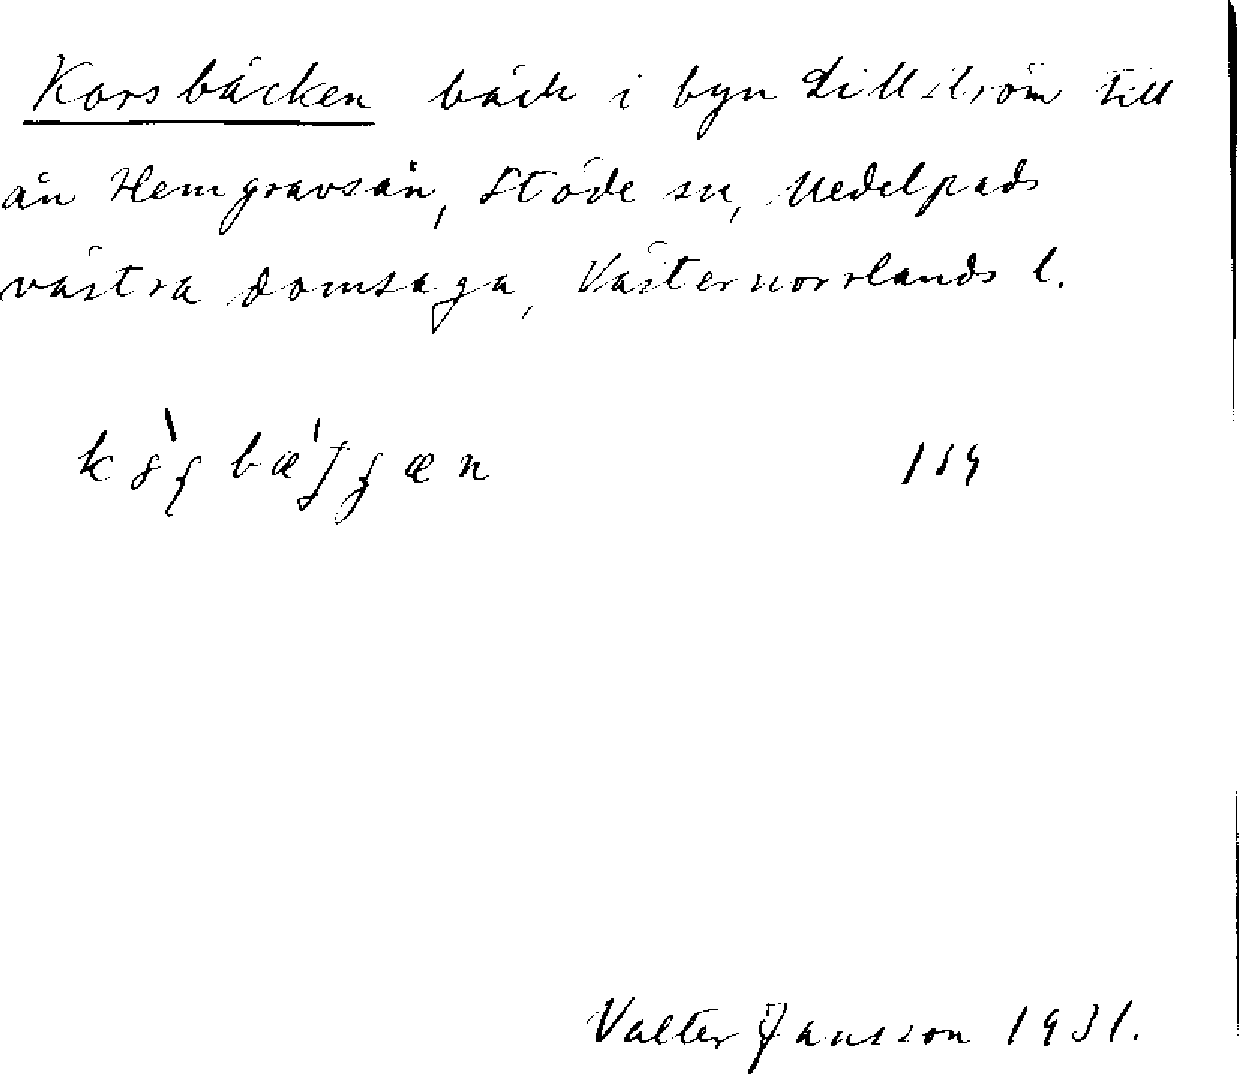 Korsbäcken bäck i byn Lillström till
ån Hemgravsån, Stöde sn, Medelpads
västra domsaga, Västernorrlands l.
159
Valter Jansson 1931.